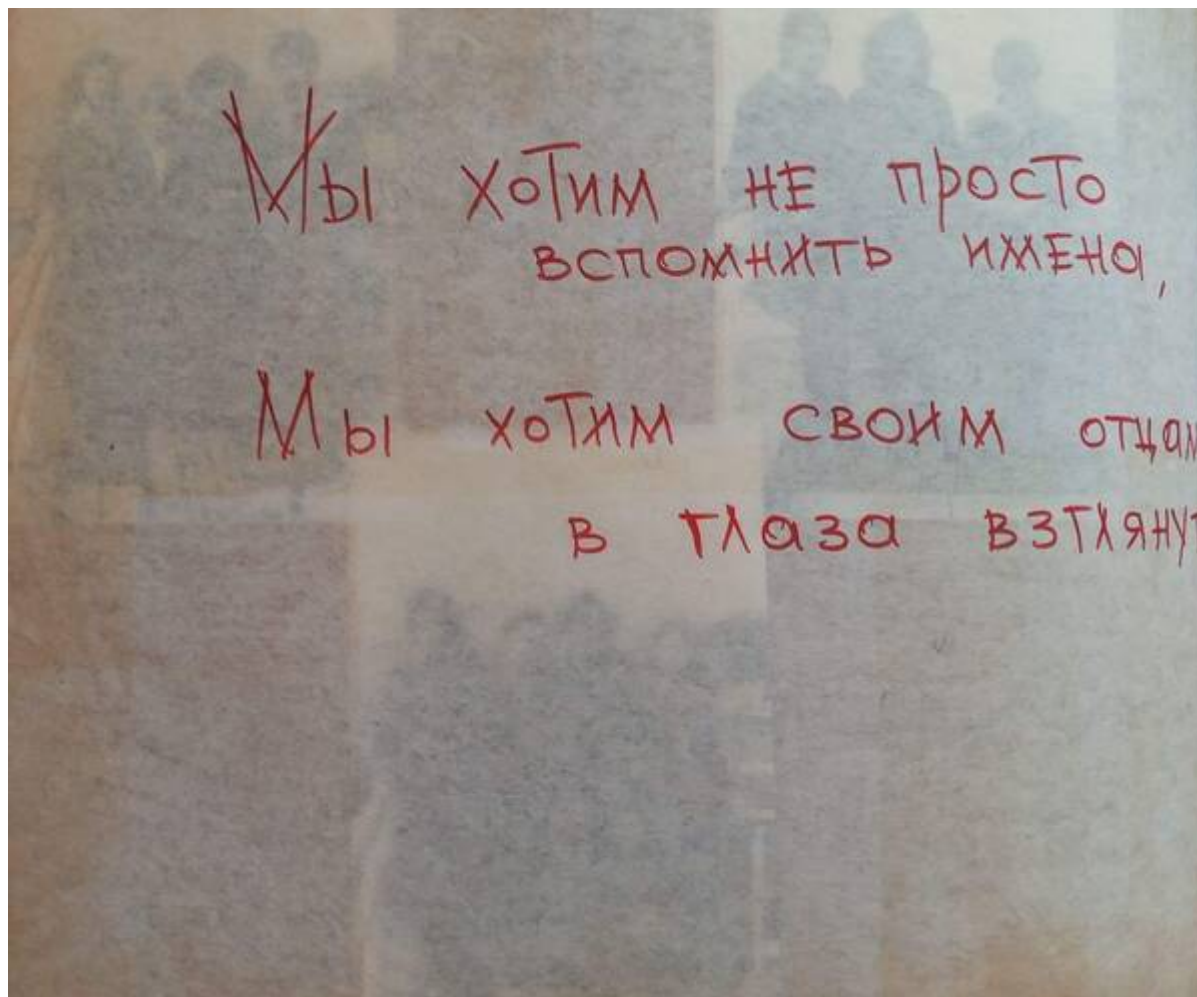 Мы хотим не просто
вспомнить имена,
Мы хотим своим отцам
в глаза взгляну